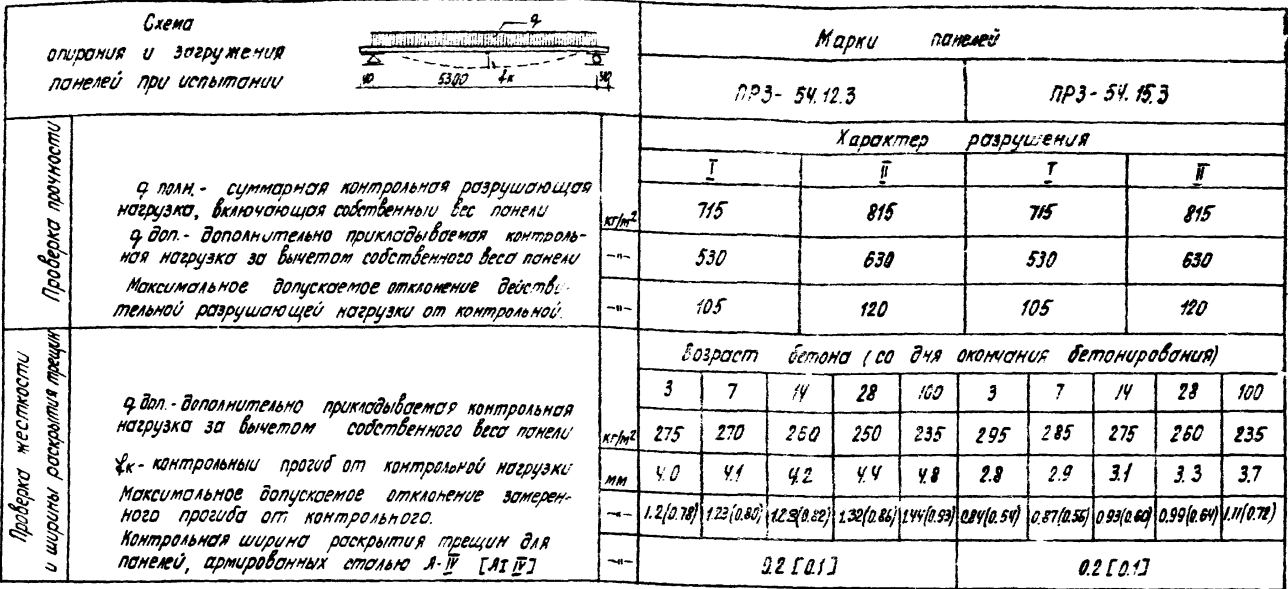 Схема
опирания и загружения
панелей при испытании
q
40 5300 fк 40
Марки панелей
ПРЗ- 54.12.3 ПРЗ- 54.15.3
Проверка прочности
Характер разрушения
I II I II
q полн. - суммарная контрольная разрушающая
нагрузка, включающая собственный вес панели кг/м² 715 815 715 815
q доп. - дополнительно прикладываемая контроль-
ная нагрузка за вычетом собственного веса панели —"— 530 630 530 630
Максимальное допускаемое отклонение действи-
тельной разрушающей нагрузки от контрольной. —"— 105 120 105 120
Проверка жесткости
и ширины раскрытия трещин
Возраст бетона (со дня окончания бетонирования)
3 7 14 28 100 3 7 14 28 100
q доп. - дополнительно прикладываемая контрольная
нагрузка за вычетом собственного веса панели кг/м² 275 270 260 250 235 295 285 275 260 235
fк - контрольный прогиб от контрольной нагрузки мм 4.0 4.1 4.2 4.4 4.8 2.8 2.9 3.1 3.3 3.7
Максимальное допускаемое отклонение замерен-
ного прогиба от контрольного. —"— 1.2(0.78) 1.23(0.80) 1.23(0.82) 1.32(0.86) 1.44(0.93) 0.84(0.54) 0.87(0.56) 0.93(0.60) 0.99(0.64) 1.11(0.72)
Контрольная ширина раскрытия трещин для
панелей, армированных сталью А-IV [АТ IV] —"— 0.2 [0.1] 0.2 [0.1]